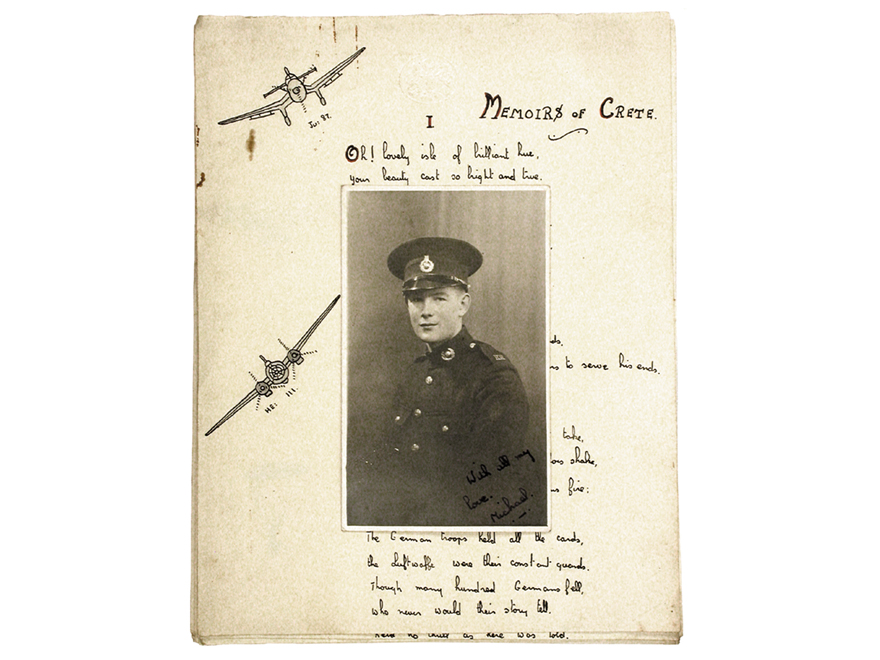 MEMOIRS OF CRETE.
I
Ju: 87.
Oh! lovely isle of brilliant hue,
your beauty cast so bright and true.
to serve his ends.
HE: 111.
take,
shake,
fire:
With all my
love.
Michael.
The German troops held all the cards,
the Luftwaffe were their constant guards.
Though many hundred Germans fell,
who never would their story tell.
as here was told.